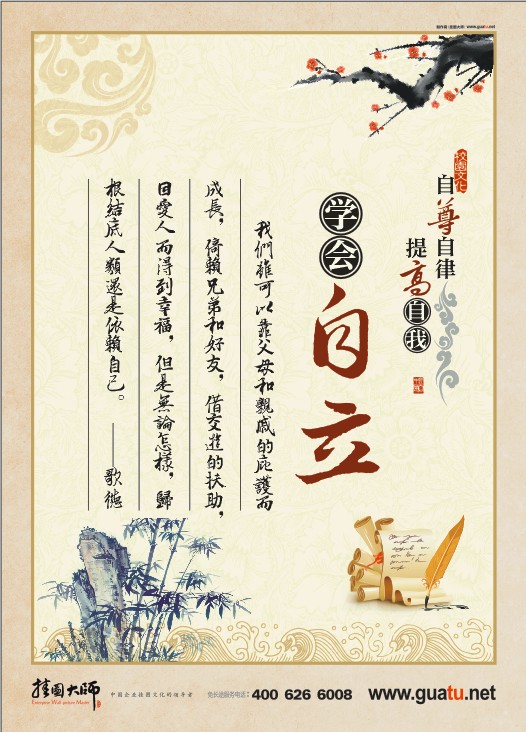 制作商（挂图大师）www.guatu.net
校园文化
自尊自律
提高自我
学会
自立
我們雖可以靠父母和親戚的庇護而
成長，倚賴兄弟和好友，借交遊的扶助，
因愛人而得到幸福，但是無論怎樣，歸
根結底人類還是依賴自己。——歌德
挂图大师
Enterprise Wall picture Master
中国企业挂图文化的领导者
免长途服务电话：400 626 6008
www.guatu.net